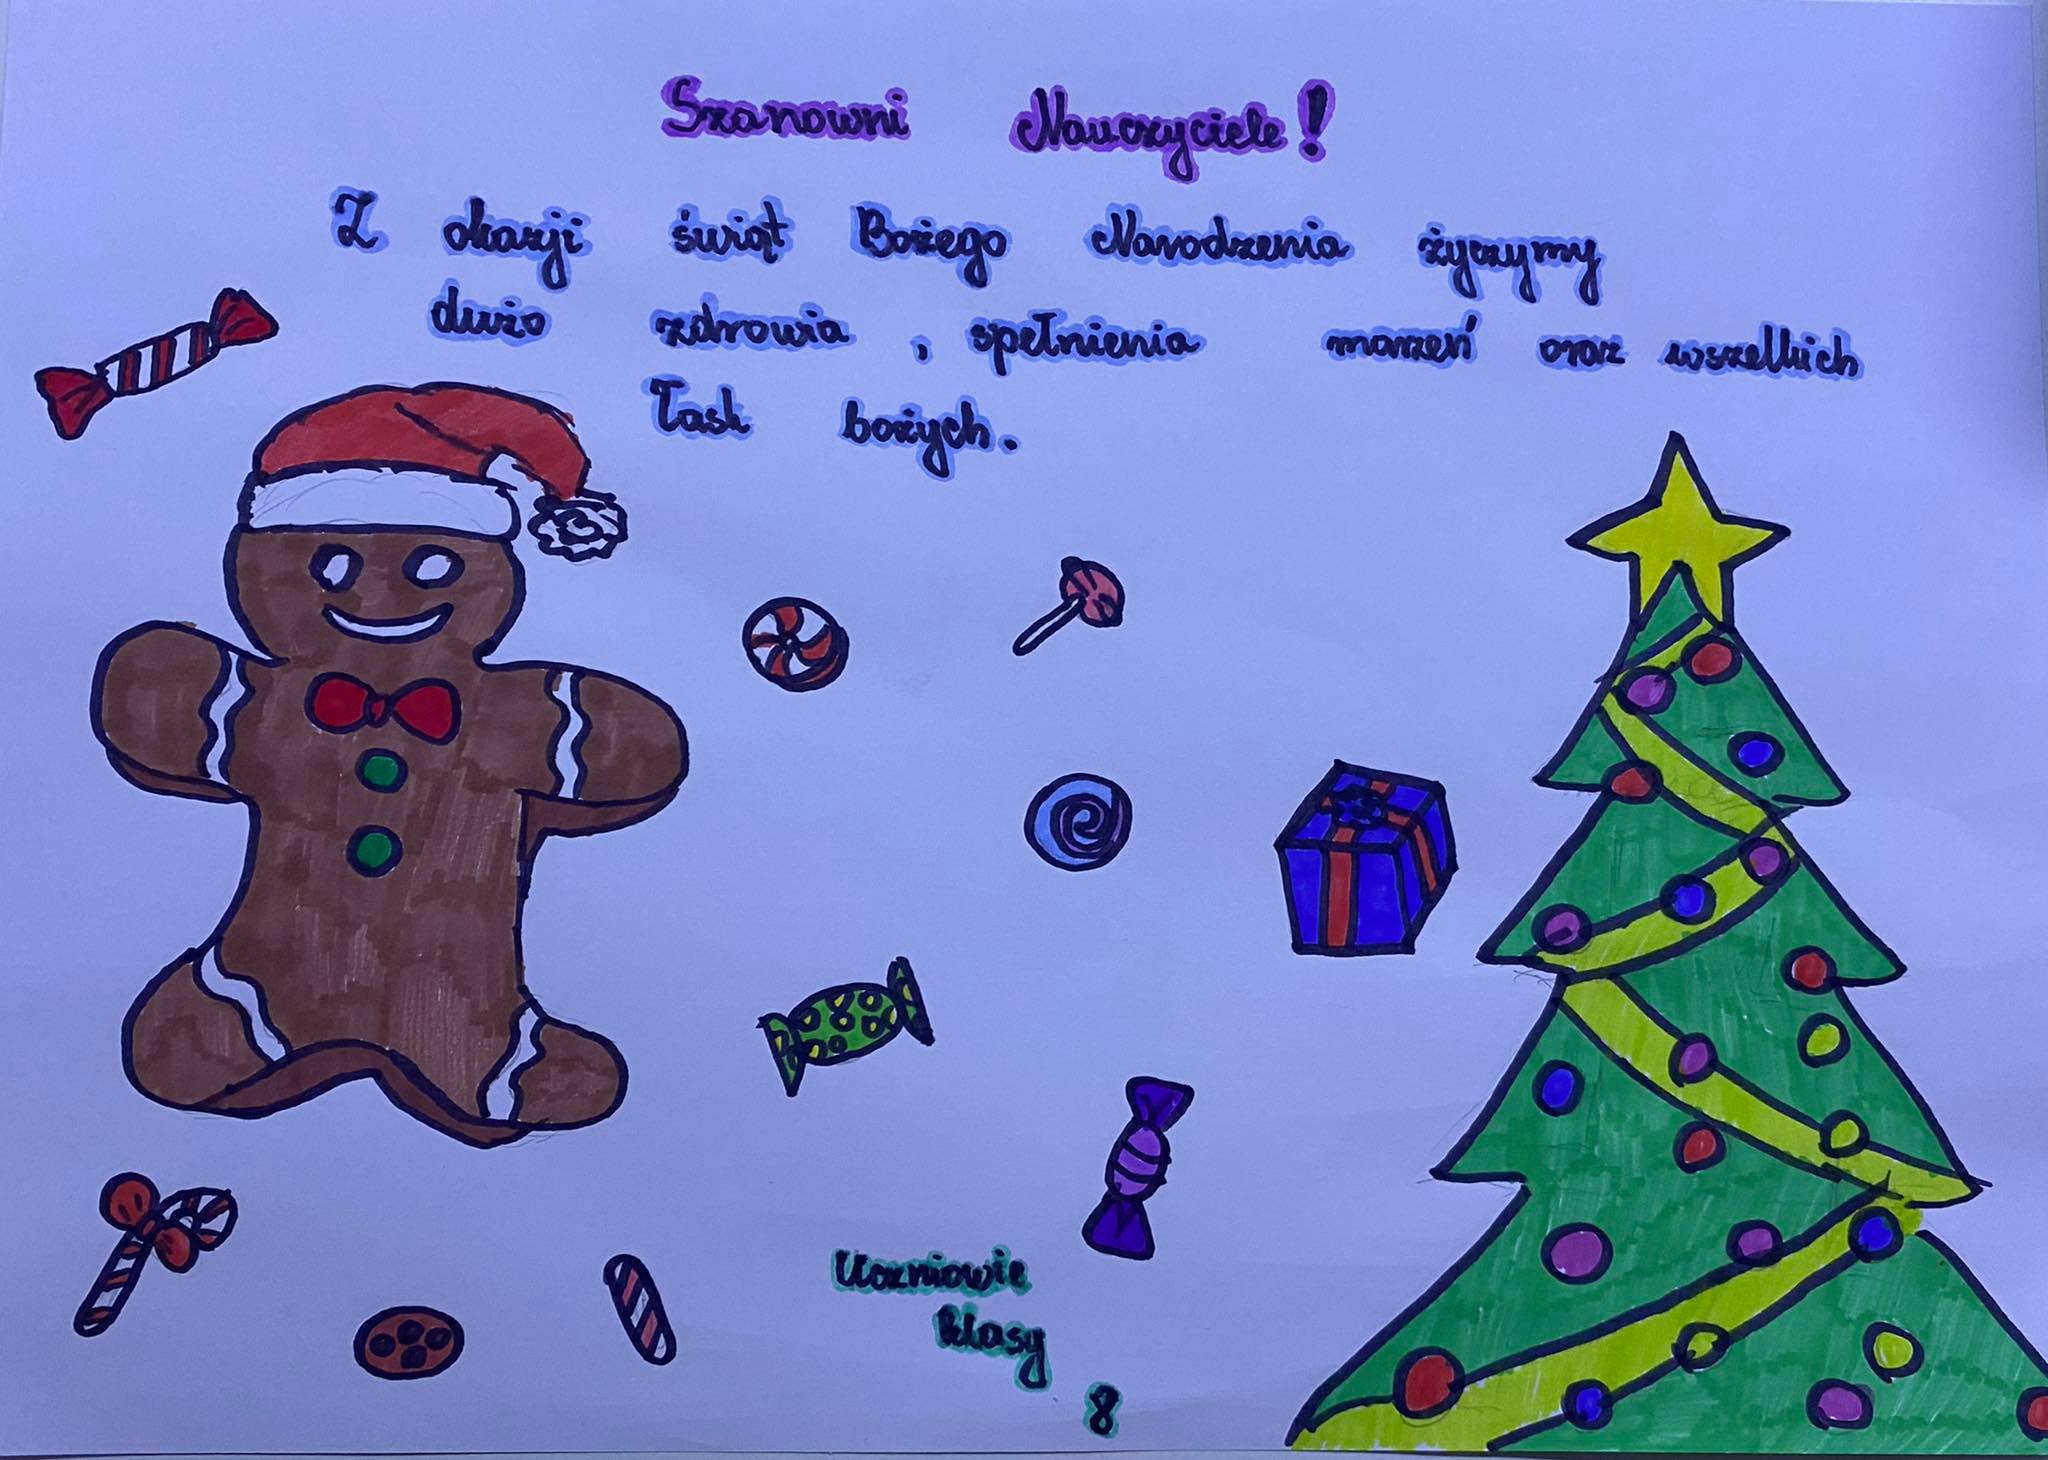 Szanowni Nauczyciele!
Z okazji świąt Bożego Narodzenia życzymy
dużo zdrowia, spełnienia marzeń oraz wszelkich
łask bożych.
Uczniowie
klasy
8